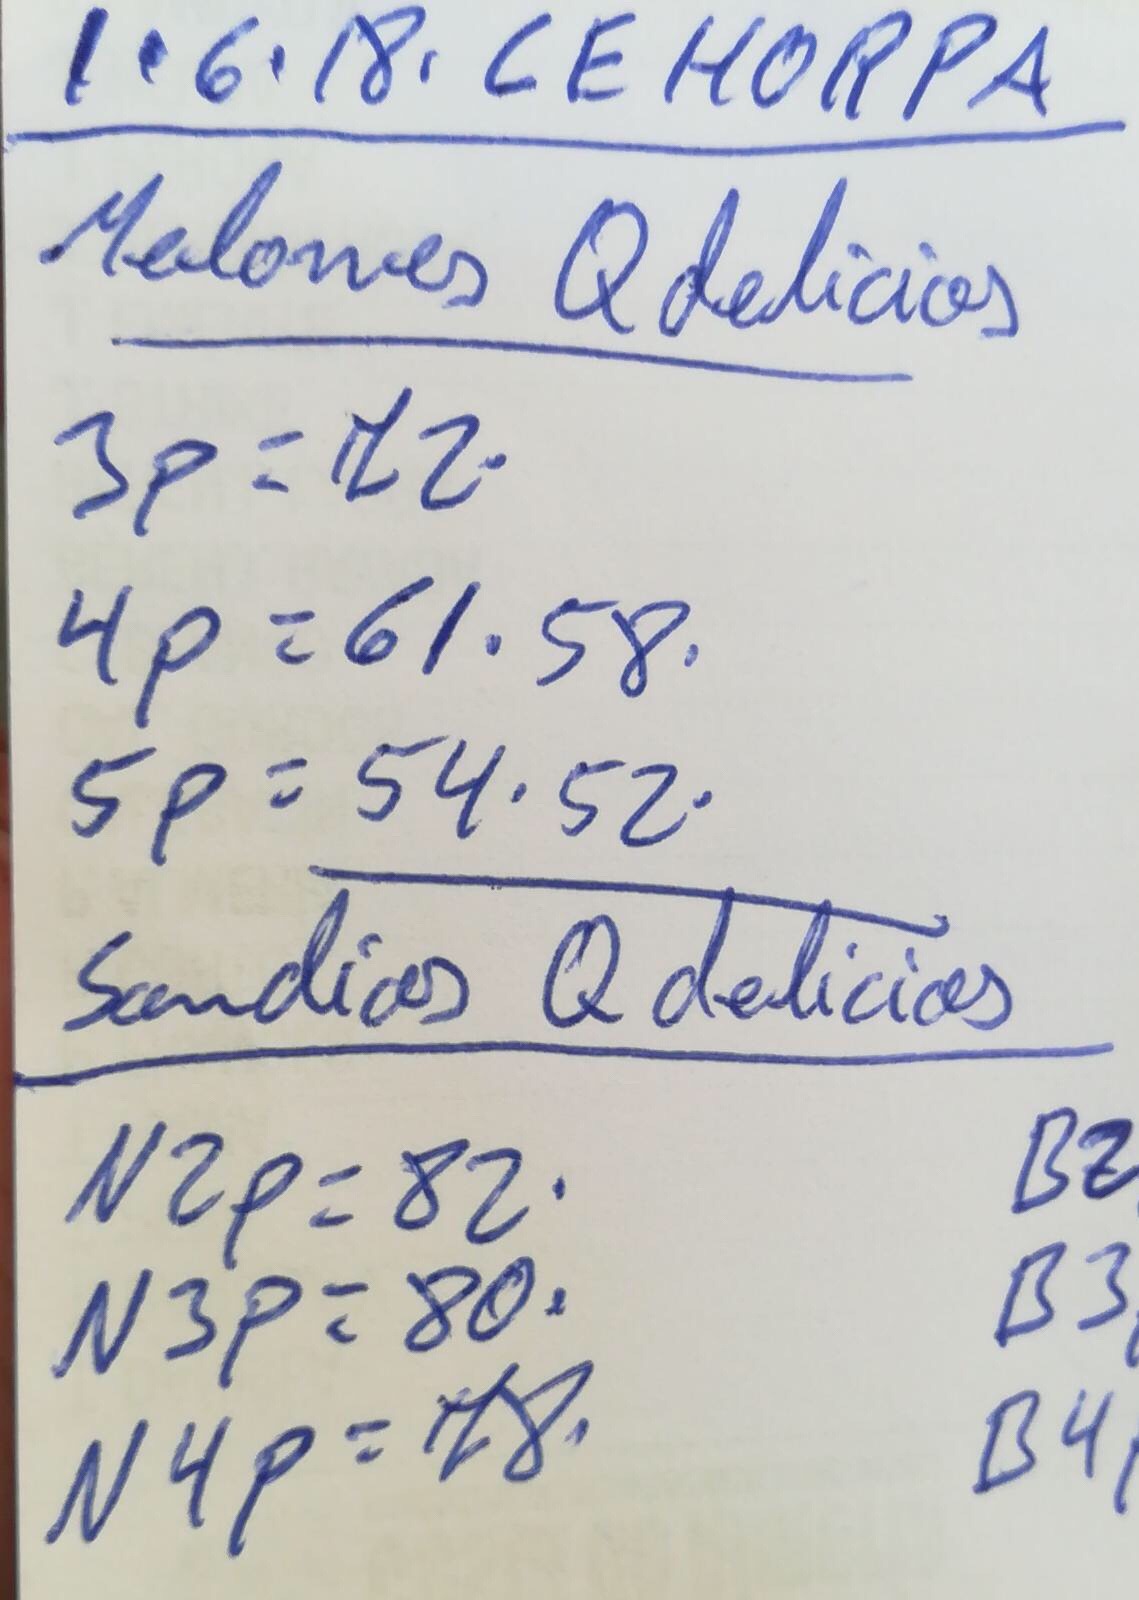 1.6.18. CEHORPA
Melones Q delicias
3p = 72.
4p = 61.58.
5p = 54.52.
Sandias Q delicias
N2p = 82. B2
N3p = 80. B3p
N4p = 78. B4p